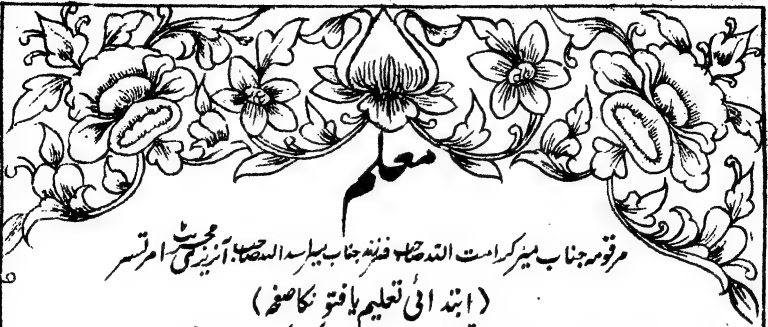 معلم
مرقومہ جناب میر کرامت اللہ صاحب فرزند جناب میر اسد اللہ صاحب آنریری مجسٹریٹ امرتسر
(ابتدائی تعلیم یافتونکا صفحہ)